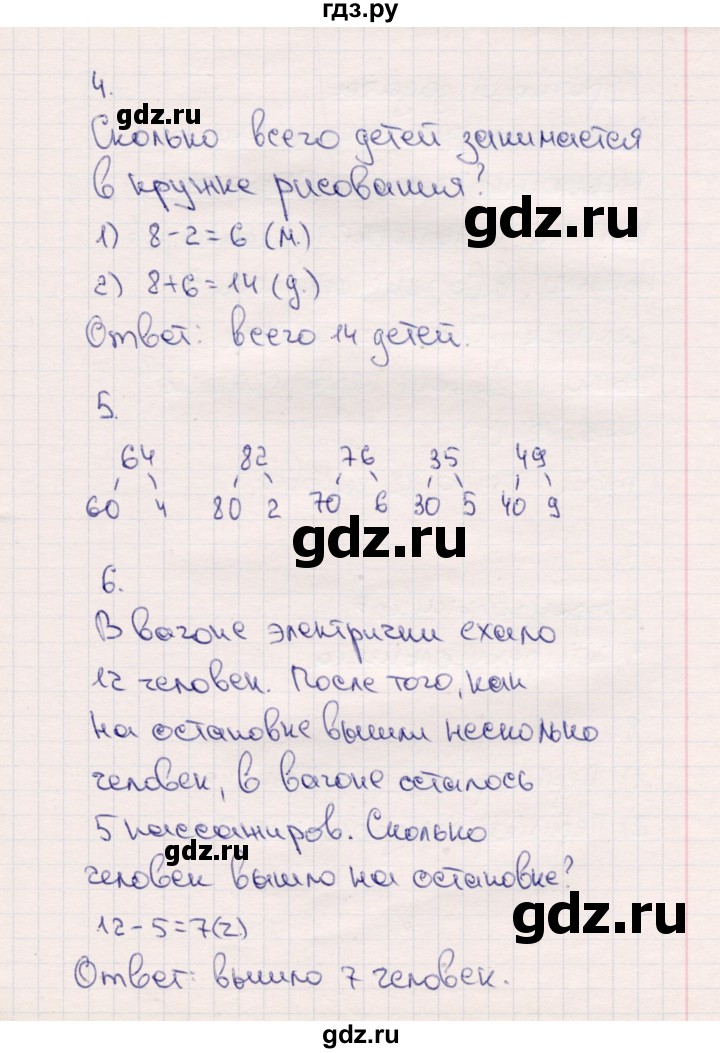 гдз.ру
4.
gdz.ru
Сколько всего детей занимается
в кружке рисования?
gdz.ru
1) 8-2=6 (м.)
2) 8+6=14 (д.)
Ответ: всего 14 детей.
5.
64 82 76 35 49
60 4 80 2 70 6 30 5 40 9
gdz.ru
6.
В вагоне электрички ехало
12 человек. После того, как
на остановке вышли несколько
человек, в вагоне осталось
5 пассажиров. Сколько
gdz.ru
человек вышло на остановке?
gdz.ru
12-5=7(ч)
Ответ: вышло 7 человек.
gdz.ru